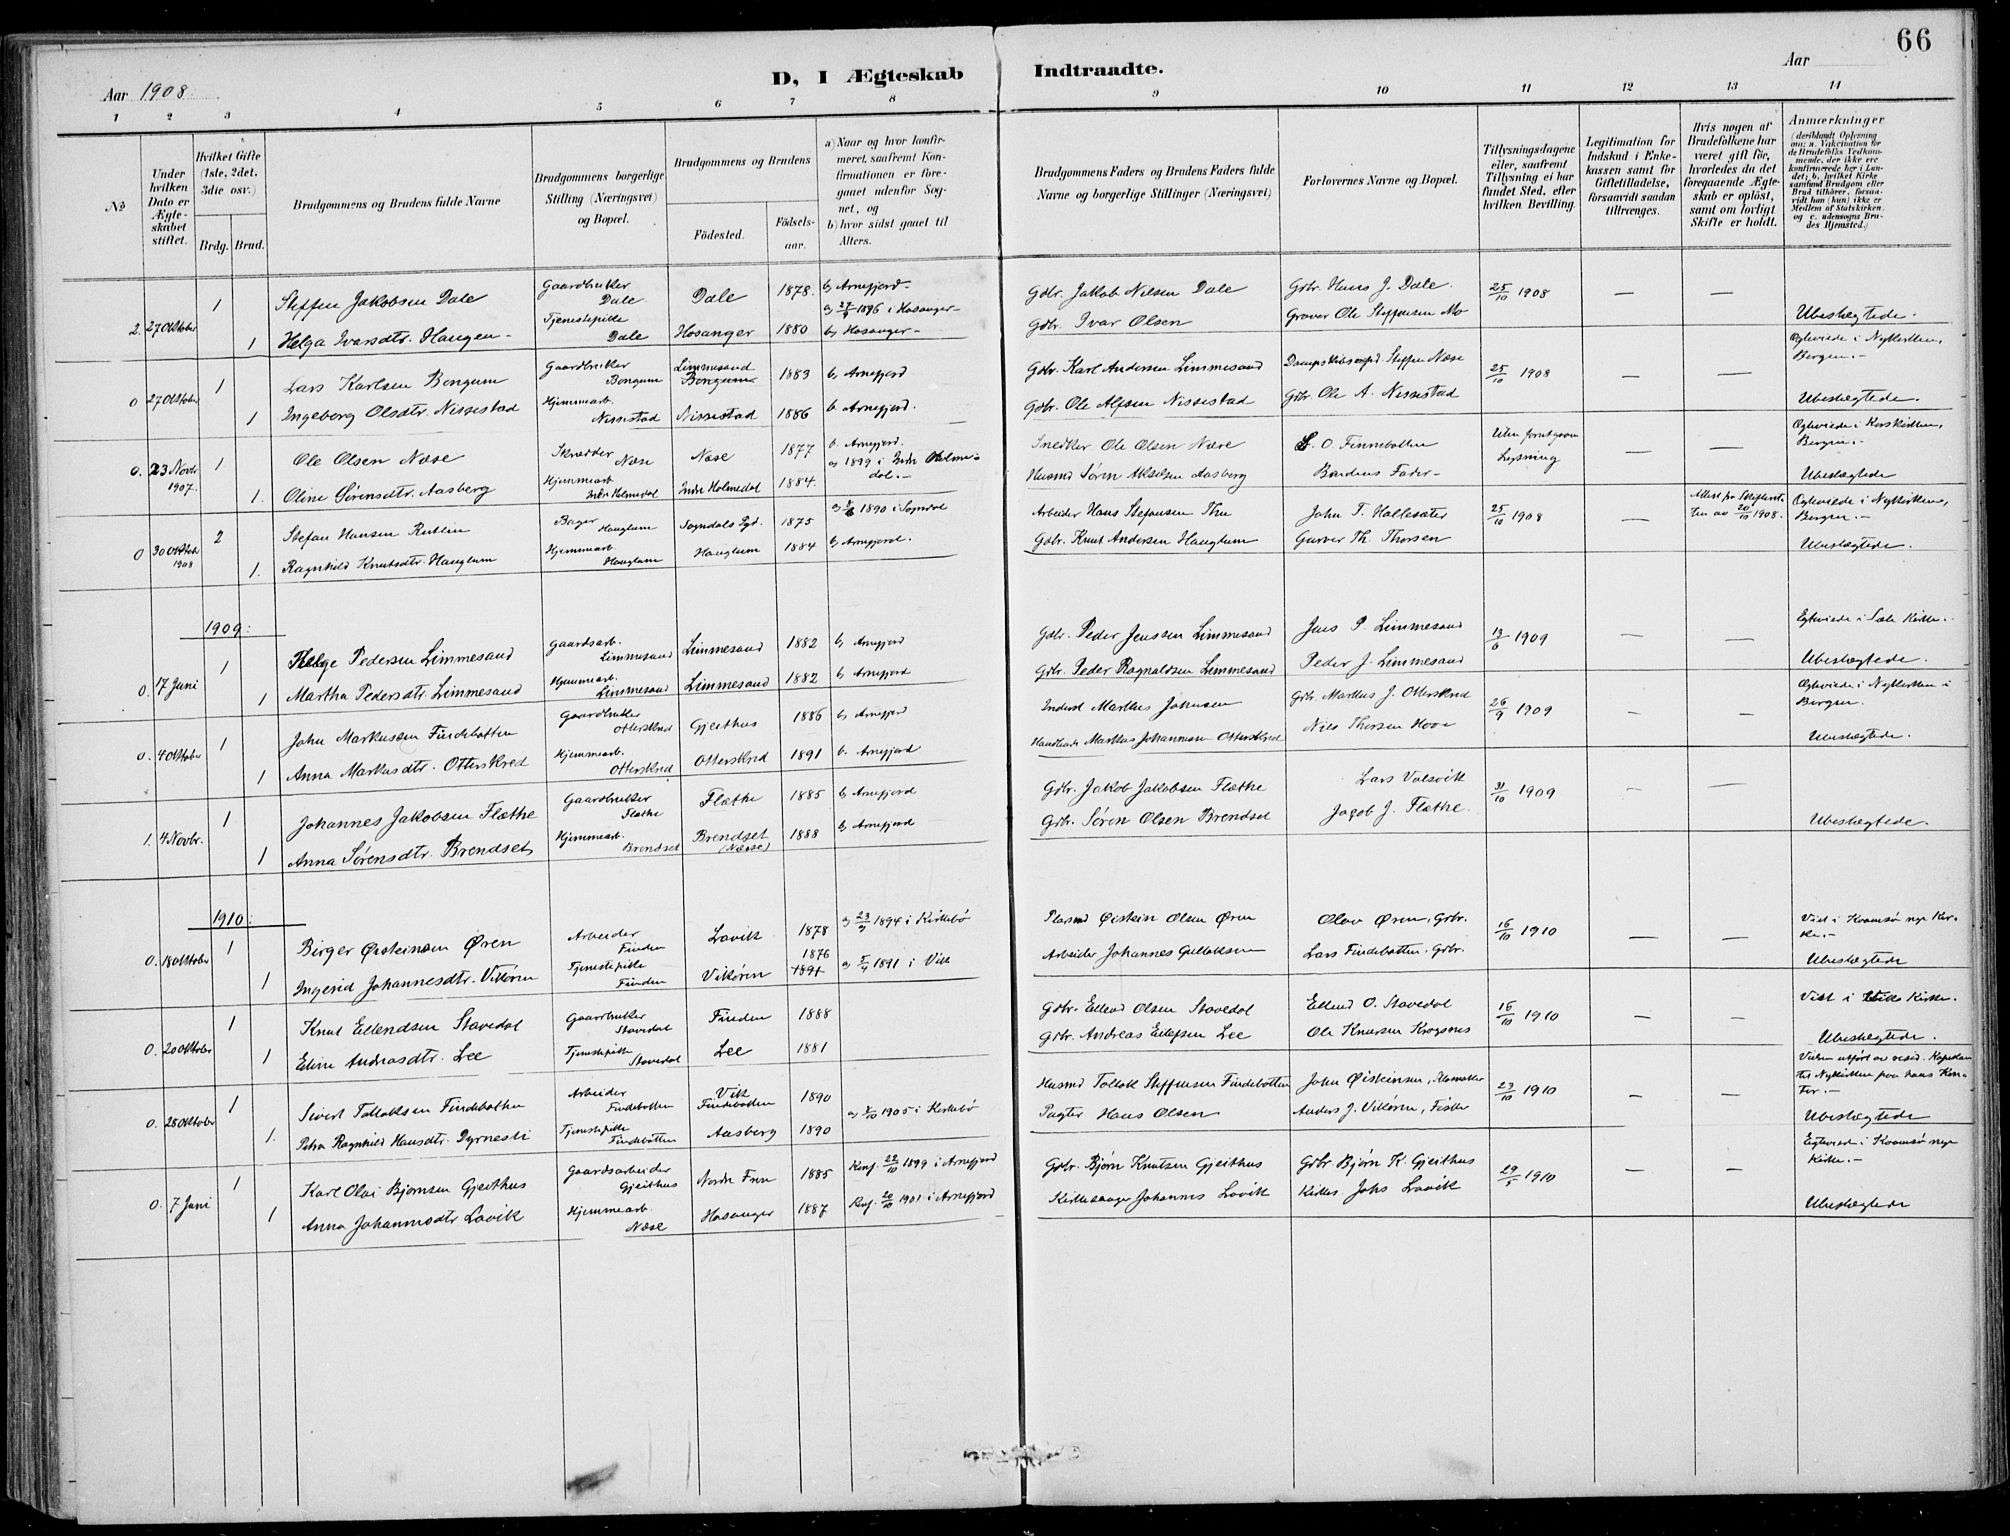 66
D, I Ægteskab Indtraadte.
Aar 1908
Aar
1 2 3 4 5 6 7 8 9 10 11 12 13 14
№
Under hvilken Dato er Ægteskabet stiftet.
Hvilket Gifte (1ste, 2det, 3die osv.)
Brdg. Brud.
Brudgommens og Brudens fulde Navne
Brudgommens borgerlige Stilling (Næringsvei) og Bopæl.
Brudgommens og Brudens
Fødested.
Fødselsaar.
a) Naar og hvor konfirmeret, saafremt Konfirmationen er foregaaet udenfor Sognet, og
b) hvor sidst gaaet til Alters.
Brudgommens Faders og Brudens Faders fulde Navne og borgerlige Stillinger (Næringsvei)
Forlovernes Navne og Bopæl.
Tillysningsdagene eller, saafremt Tillysning ei har fundet Sted, efter hvilken Bevilling.
Legitimation for Indskud i Enkekassen samt for Giftetilladelse, forsaavidt saadan tiltrænges.
Hvis nogen af Brudefolkene har været gift før, hvorledes da det foregaaende Ægteskab er opløst, samt om lovligt Skifte er holdt.
Anmærkninger (deriblandt Oplysning om: a. Vakcination for de Brudefolks Vedkommende, der ikke ere konfirmerede her i Landet; b. hvilket Kirkesamfund Brudgom eller Brud tilhører, forsaavidt han (hun) ikke er Medlem af Statskirken, og c. udensogns Brudes Hjemsted.)
2. 27 Oktober 1 Steffen Jakobsen Dale Gaardbruker Dale Dale 1878. b) Arnefjord Gdbr. Jakob Nilsen Dale Grbr. Hans J. Dale. 25/10 1908 — —
1 Helga Ivarsdtr. Haugen Tjenestepike Dale Hosanger 1880 a) 27/9 1896 i Hosanger b) Hosanger Gdbr. Ivar Olsen Graver Ole Steffensen Mo Ubeslægtede.
0 27 Oktober 1 Lars Karlsen Bongum Gaardbruker Bongum Limmesand Bongum 1883 b) Arnefjord Gdbr. Karl Andersen Limmesand Steffen Næse 25/10 1908 — — Egteviede i Nykirken, Bergen.
1 Ingeborg Olsdtr. Nissestad Hjemmearb. Nissestad Nissestad 1886 b. Arnefjord. Gdbr. Ole Alfsen Nissestad Grbr. Ole A. Nissestad Ubeslægtede.
0. 23 Novbr 1907. 1 Ole Olsen Næse Skrædder Næse Næse 1877 b. Arnefjord. Snedker Ole Olsen Næse O. Finnebotten Uten forutgaaen Lysning — — Egteviede i Korskirken, Bergen.
1. Oline Sørensdtr. Aasberg Hjemmearb. Indr Holmedal Indr Holmedal 1884. a) 1899 i Indr Holmedal. Husmd Søren Akselsen Aasberg Brudens Fader Ubeslægtede
0 30 Oktober 1908 2 Stefan Hansen Rutlin Bager Hauglum Sogndals Pgd. 1875 1890 i Sogndal Arbeider Hans Stefansen Thu John T. Hallesæter 25/10 1908 — Attest fra Skifteretten av 20/10 1908. Egteviede i Nykirken, Bergen.
1. Ragnhild Knutsdtr. Hauglum Hjemmearb. Hauglum Hauglum 1884 b) Arnefjord. Gdbr. Knut Andersen Hauglum Garver Th. Thorsen Ubeslægtede.
1909:
0. 17 Juni 1 Helge Pedersen Limmesand Gaardsarb. Limmesand Limmesand 1882 b) Arnefjord Gdbr. Peder Jenssen Limmesand Jens P. Limmesand 13/6 1909 — — Egteviede i Sæle Kirke.
1 Martha Pedersdtr. Limmesand Hjemmearb. Limmesand Limmesand 1882 b) Arnefjord Grbr. Peder Ragnaldsen Limmesand Peder J. Limmesand Ubeslægtede.
0. 4 Oktober 1 John Markussen Findebotten Gaardbruker Otterskred Gjeithus 1886 b) Arnefjord Inderst Markus Johnsen Grbr. Markus J. Otterskred 26/9 1909 — — Egteviede i Nykirken i Bergen.
1 Anna Markusdtr. Otterskred Hjemmearb. Otterskred Otterskred 1891 b. Arnefjord Markus Johannesen Otterskred Nils Thorsen Hove Ubeslægtede.
1. 4 Novbr. 1 Johannes Jakobsen Flæthe Gaardbruker Flæthe Flæthe 1885 b) Arnefjord Gdbr. Jakob Jakobsen Flæthe Lars Valsvik 31/10 1909 — —
1 Anna Sørensdtr. Brendset Hjemmearb. Brendset Brendset (Næsse) 1888 b) Arnefjord Grbr. Søren Olsen Brendset Jagob J. Flæthe. Ubeslægtede.
1910:
0. 18 Oktober 1 Birger Øisteinsen Øren Arbeider Finden Lavik 1878 a) 23/9 1894 i Kirkebø Plasmd Øistein Olsen Øren Olav Øren, Grbr. 16/10 1910 — — Viet i Kvamsø nye Kirke.
1 Ingerid Johannesdtr. Vikøren Tjenestepike Finden Vikøren 1876 1891 a) 5/4 1891 i Vik Arbeider Johannes Gullaksen Lars Findebotten. Grbr. Ubeslægtede
0. 20 Oktober 1 Knut Ellendsen Stavedal Gaardbruker Stavedal Finden 1888 Gdbr. Ellend Olsen Stavedal Ellend O. Stavedal 16/10 1910 — — Viet i Kirke.
1 Eline Andreasdtr. Lee Tjenestepike Stavedal Lee 1881 Grbr. Andreas Eilefsen Lee Ole Knutsen Krogsnes Ubeslægtede.
0. 28 Oktober 1 Sivert Tollaksen Findebotten Arbeider Findebotten Vik Findebotten 1890 Husmd Tollak Steffensen Findebotten John Øisteinsen, 23/10 1910 — — Vielsen utført av resid. Kapellan til Nykirken paa hans Kontor.
1. Petra Ragnhild Hansdtr. Dyrnesli Tjenestepike Findebotten Aasberg 1890 1905 i Kirkebø Pagter Hans Olsen Anders J. Vikøren, Fisker Ubeslægtede
0. 7 Juni 1 Karl Olai Bjørnsen Gjeithus Gaardsarbeider Gjeithus Nordr Frøn 1885 Konf. 22/10 1899 i Arnefjord Gdbr. Bjørn Knutsen Gjeithus Grbr Bjørn K. Gjeithus 29/5 1910 — — Egteviede i Kvamsø nye Kirke.
1 Anna Johannesdtr Lavik Hjemmearb. Næse Hosanger 1887 Konf. 20/10 1901 i Arnefjord Kirkesanger Johannes Lavik Kirkes. Johs Lavik Ubeslægtede